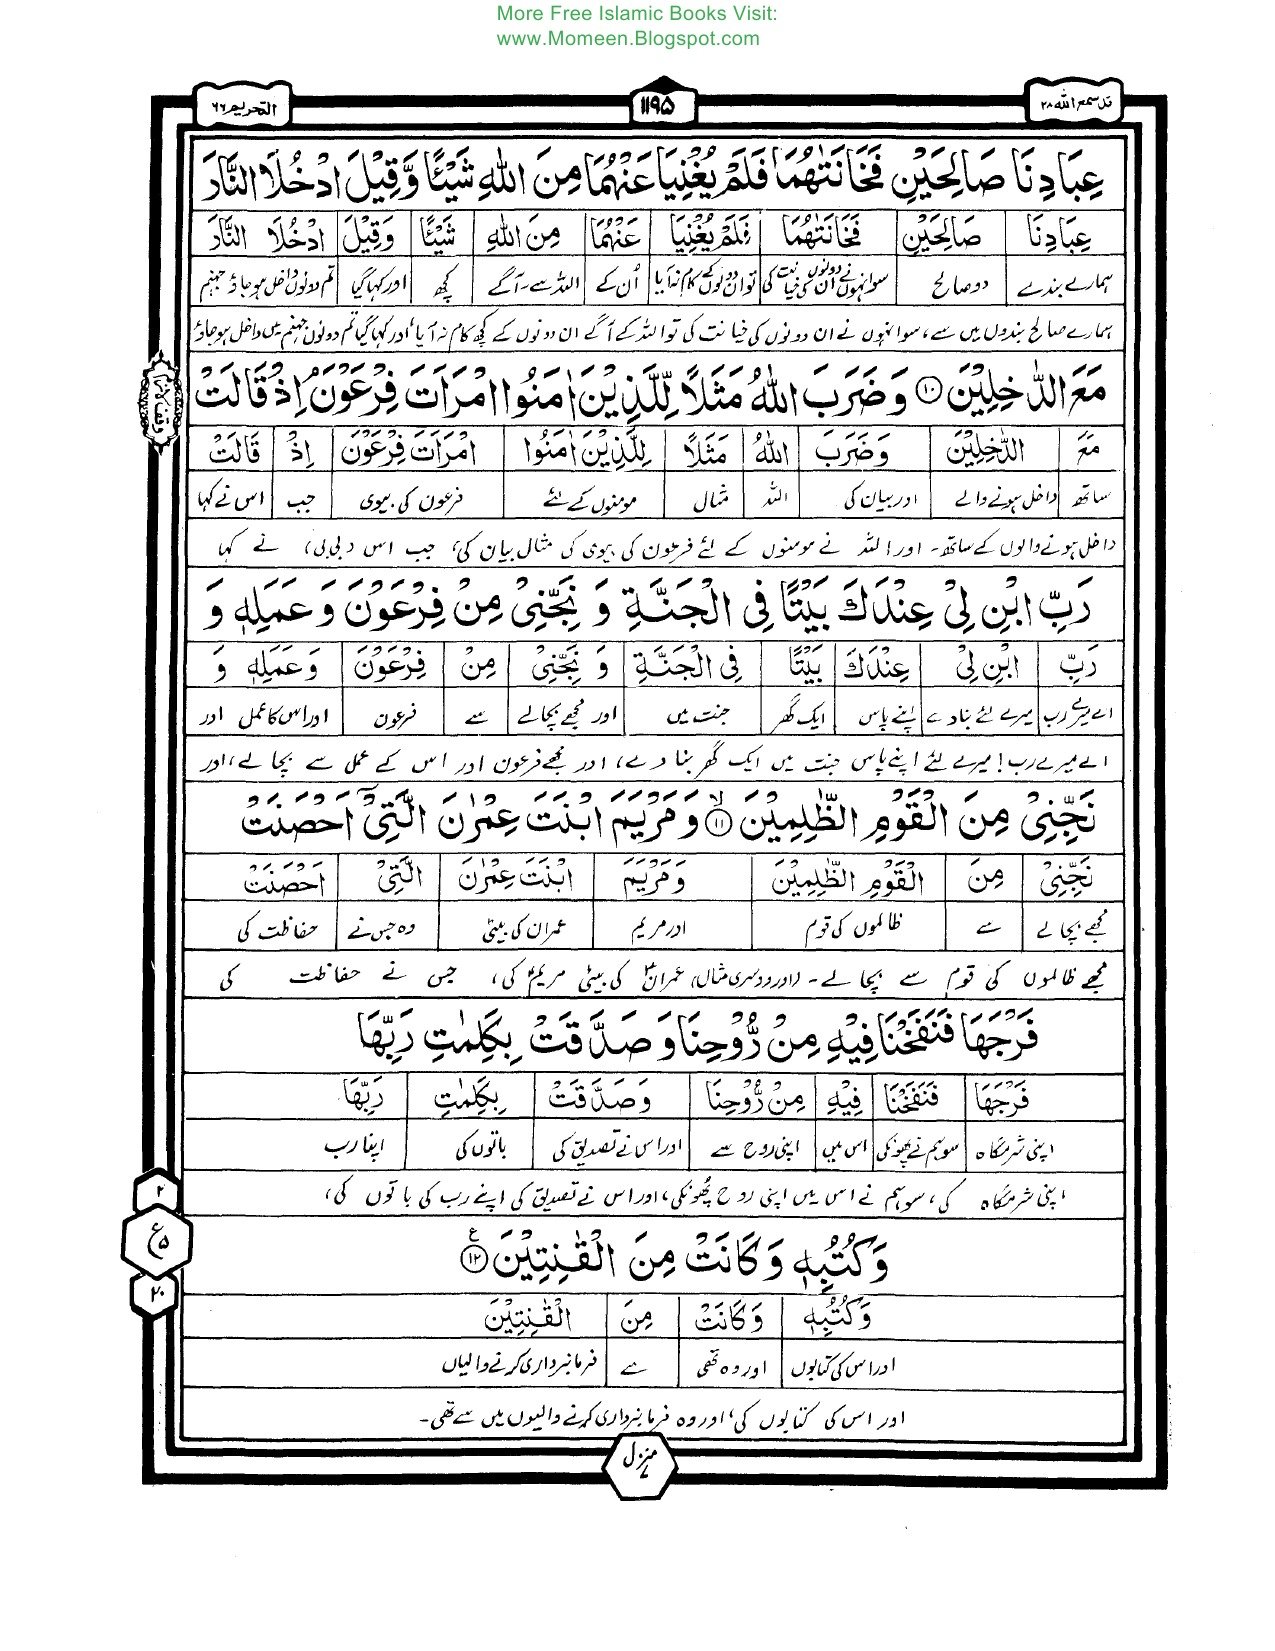 More Free Islamic Books Visit:
www.Momeen.Blogspot.com
قد سمع الله ۲۸
۱۱۹۵
التحریم ۶۶
عِبَادِنَا صَالِحَيْنِ فَخَانَتٰهُمَا فَلَمْ يُغْنِيَا عَنْهُمَا مِنَ اللّٰهِ شَيْـًٔا وَّقِيْلَ ادْخُلَا النَّارَ
عِبَادِنَا صَالِحَيْنِ فَخَانَتٰهُمَا فَلَمْ يُغْنِيَا عَنْهُمَا مِنَ اللّٰهِ شَيْـًٔا وَّقِيْلَ ادْخُلَا النَّارَ
ہمارے بندے دو صالح سو انہوں نے ان دونوں کی خیانت کی تو ان دونوں کے کام نہ آیا اُن کے اللہ سے۔آگے کچھ اور کہا گیا تم دونوں داخل ہو جاؤ جہنم
ہمارے صالح بندوں میں سے، سو انہوں نے ان دونوں کی خیانت کی تو اللہ کے آگے ان دونوں کے کچھ کام نہ آیا، اور کہا گیا تم دونوں جہنم میں داخل ہو جاؤ
مَعَ الدّٰخِلِيْنَ ۝۱۰ وَضَرَبَ اللّٰهُ مَثَلًا لِّلَّذِيْنَ اٰمَنُوا امْرَاَتَ فِرْعَوْنَ ۘ اِذْ قَالَتْ
مَعَ الدّٰخِلِيْنَ وَضَرَبَ اللّٰهُ مَثَلًا لِّلَّذِيْنَ اٰمَنُوا امْرَاَتَ فِرْعَوْنَ اِذْ قَالَتْ
ساتھ داخل ہونے والے اور بیان کی اللہ مثال مومنوں کے لئے فرعون کی بیوی جب اس نے کہا
داخل ہونے والوں کے ساتھ۔ اور اللہ نے مومنوں کے لئے فرعون کی بیوی کی مثال بیان کی، جب اس (بی بی) نے کہا
رَبِّ ابْنِ لِيْ عِنْدَكَ بَيْتًا فِي الْجَنَّةِ وَ نَجِّنِيْ مِنْ فِرْعَوْنَ وَ عَمَلِهٖ وَ
رَبِّ ابْنِ لِيْ عِنْدَكَ بَيْتًا فِي الْجَنَّةِ وَ نَجِّنِيْ مِنْ فِرْعَوْنَ وَ عَمَلِهٖ وَ
اے میرے رب میرے لئے بنا دے اپنے پاس ایک گھر جنت میں اور مجھے بچا لے سے فرعون اور اس کا عمل اور
اے میرے رب! میرے لئے اپنے پاس جنت میں ایک گھر بنا دے، اور مجھے فرعون اور اس کے عمل سے بچا لے، اور
نَجِّنِيْ مِنَ الْقَوْمِ الظّٰلِمِيْنَ ۝۱۱ۙ وَ مَرْيَمَ ابْنَتَ عِمْرٰنَ الَّتِيْٓ اَحْصَنَتْ
نَجِّنِيْ مِنَ الْقَوْمِ الظّٰلِمِيْنَ وَ مَرْيَمَ ابْنَتَ عِمْرٰنَ الَّتِيْٓ اَحْصَنَتْ
مجھے بچا لے سے ظالموں کی قوم اور مریم عمران کی بیٹی وہ جس نے حفاظت کی
مجھے ظالموں کی قوم سے بچا لے۔ (اور دوسری مثال) عمران کی بیٹی مریم کی، جس نے حفاظت کی
فَرْجَهَا فَنَفَخْنَا فِيْهِ مِنْ رُّوْحِنَا وَ صَدَّقَتْ بِكَلِمٰتِ رَبِّهَا
فَرْجَهَا فَنَفَخْنَا فِيْهِ مِنْ رُّوْحِنَا وَ صَدَّقَتْ بِكَلِمٰتِ رَبِّهَا
اپنی شرمگاہ سو ہم نے پھونکی اس میں اپنی روح سے اور اس نے تصدیق کی باتوں کی اپنا رب
اپنی شرمگاہ کی، سو ہم نے اس میں اپنی روح پھونکی، اور اس نے تصدیق کی اپنے رب کی باتوں کی،
وَ كُتُبِهٖ وَ كَانَتْ مِنَ الْقٰنِتِيْنَ ۝۱۲ع
وَ كُتُبِهٖ وَ كَانَتْ مِنَ الْقٰنِتِيْنَ
اور اس کی کتابوں اور وہ تھی سے فرمانبرداری کرنے والیاں
اور اس کی کتابوں کی، اور وہ فرمانبرداری کرنے والیوں میں سے تھی۔
۲
ع ۵
۲۰
منزل ۷